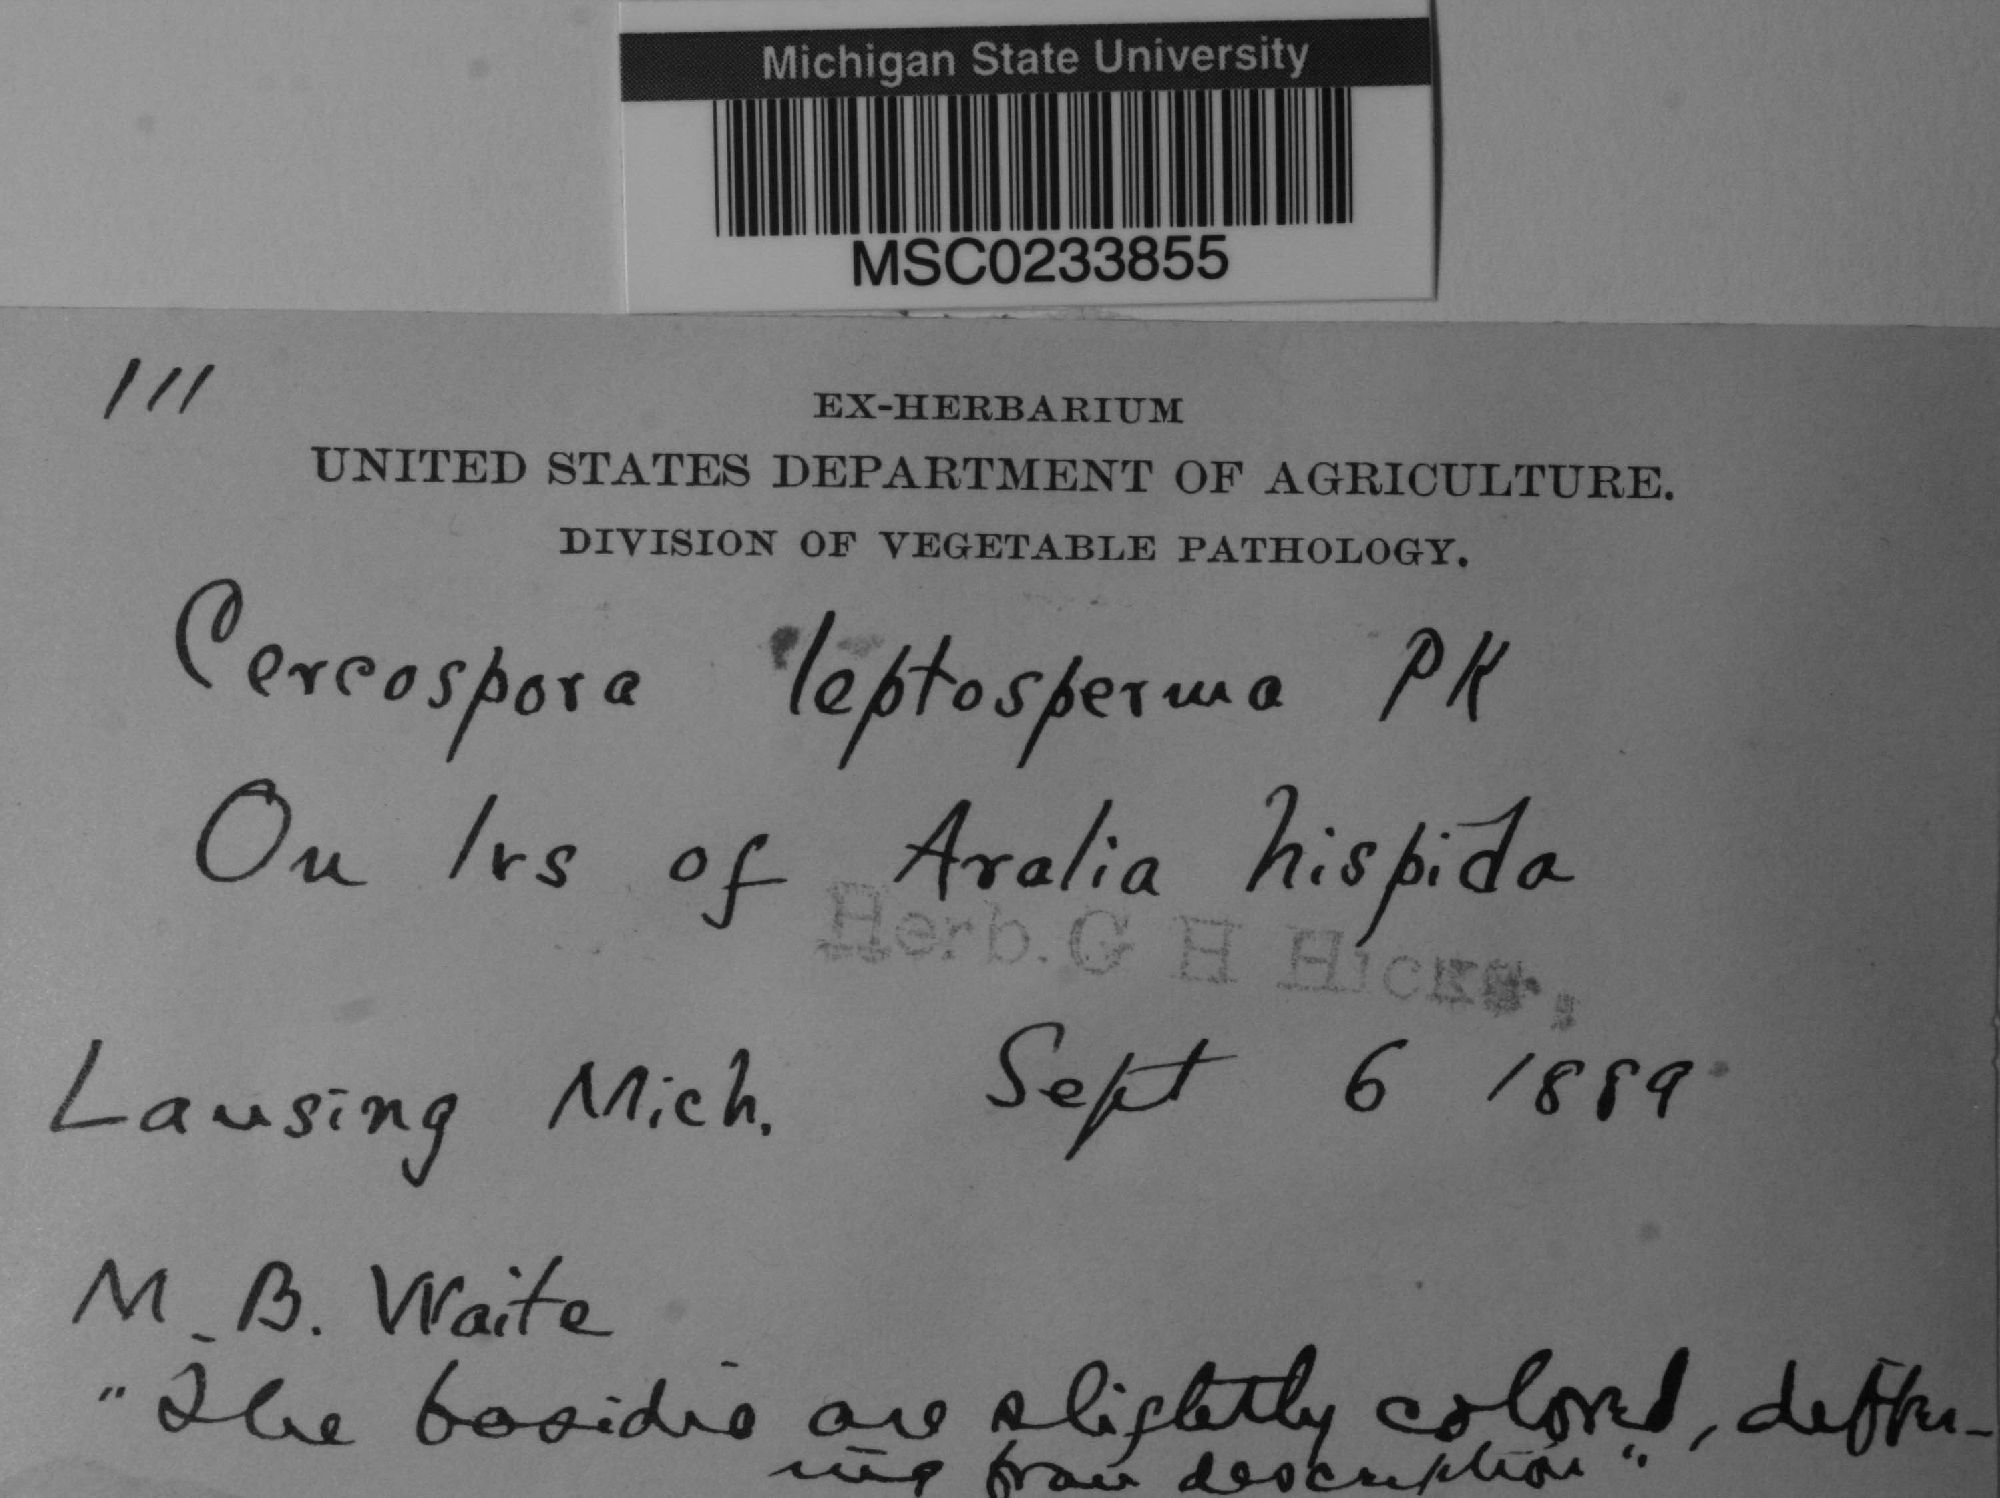 Michigan State University
MSC0233855
111
EX-HERBARIUM
UNITED STATES DEPARTMENT OF AGRICULTURE.
DIVISION OF VEGETABLE PATHOLOGY.
Cercospora leptosperma PK
On lvs of Aralia hispida
Herb. G H Hicks,
Lansing Mich. Sept 6 1889
M. B. Waite
"The basidia are slightly colored, differ-
ing from description".